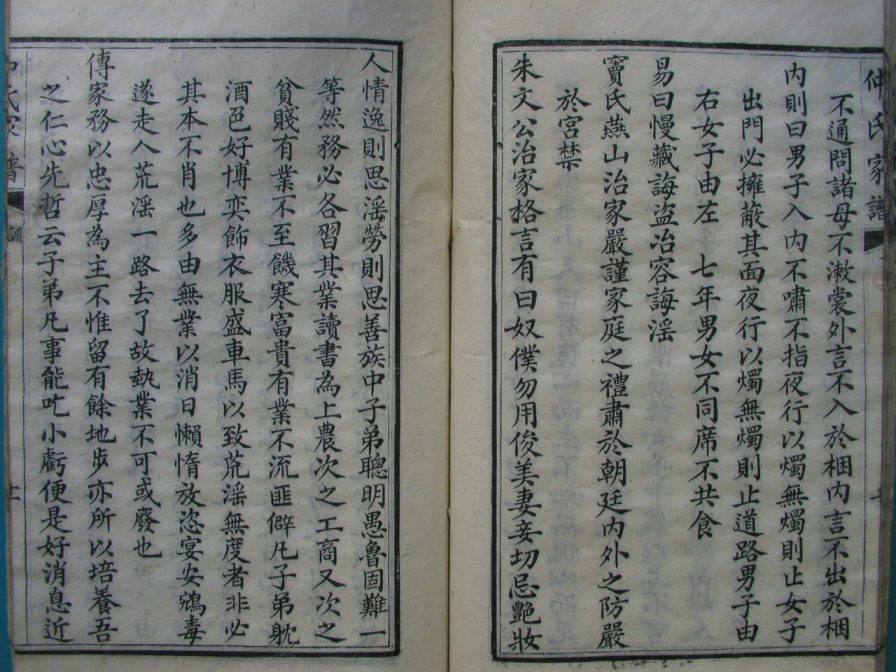 仲氏家譜
不通問諸母不漱裳外言不入於梱内言不出於梱
内則曰男子入内不嘯不指夜行以燭無燭則止女子
出門必擁蔽其面夜行以燭無燭則止道路男子由
右女子由左 七年男女不同席不共食
易曰慢藏誨盜冶容誨淫
竇氏燕山治家嚴謹家庭之禮肅於朝廷内外之防嚴
於宮禁
朱文公治家格言有曰奴僕勿用俊美妻妾切忌艷妝
人情逸則思淫勞則思善族中子弟聰明愚魯固難一
等然務必各習其業讀書為上農次之工商又次之
貧賤有業不至饑寒富貴有業不流匪僻凡子弟躭
酒色好博奕飾衣服盛車馬以致荒淫無度者非必
其本不肖也多由無業以消日懶惰放恣宴安鴆毒
遂走入荒淫一路去了故執業不可或廢也
傳家務以忠厚為主不惟留有餘地步亦所以培養吾
之仁心先哲云子弟凡事能吃小虧便是好消息近
氏家譜
訓
十